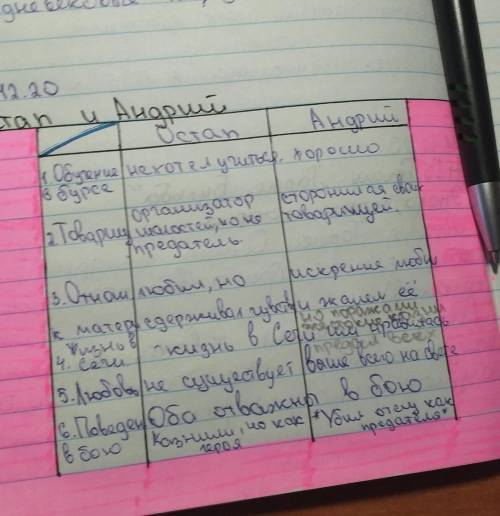 12.20
Остап и Андрий
Остап Андрий
1. Обучение в бурсе не хотел учиться. хорошо
2. Товарищ организатор шалостей, но не предатель. сторонился своих товарищей.
3. Отнош к матери любил, но сдерживал чувства искренне любил и жалел её
4. Жизнь в Сечи жизнь в Сечи нравилась
5. Любовь не существует выше всего на свете
6. Поведен в бою Оба отважны в бою
Казнили, но как героя "Убил отец как предателя"